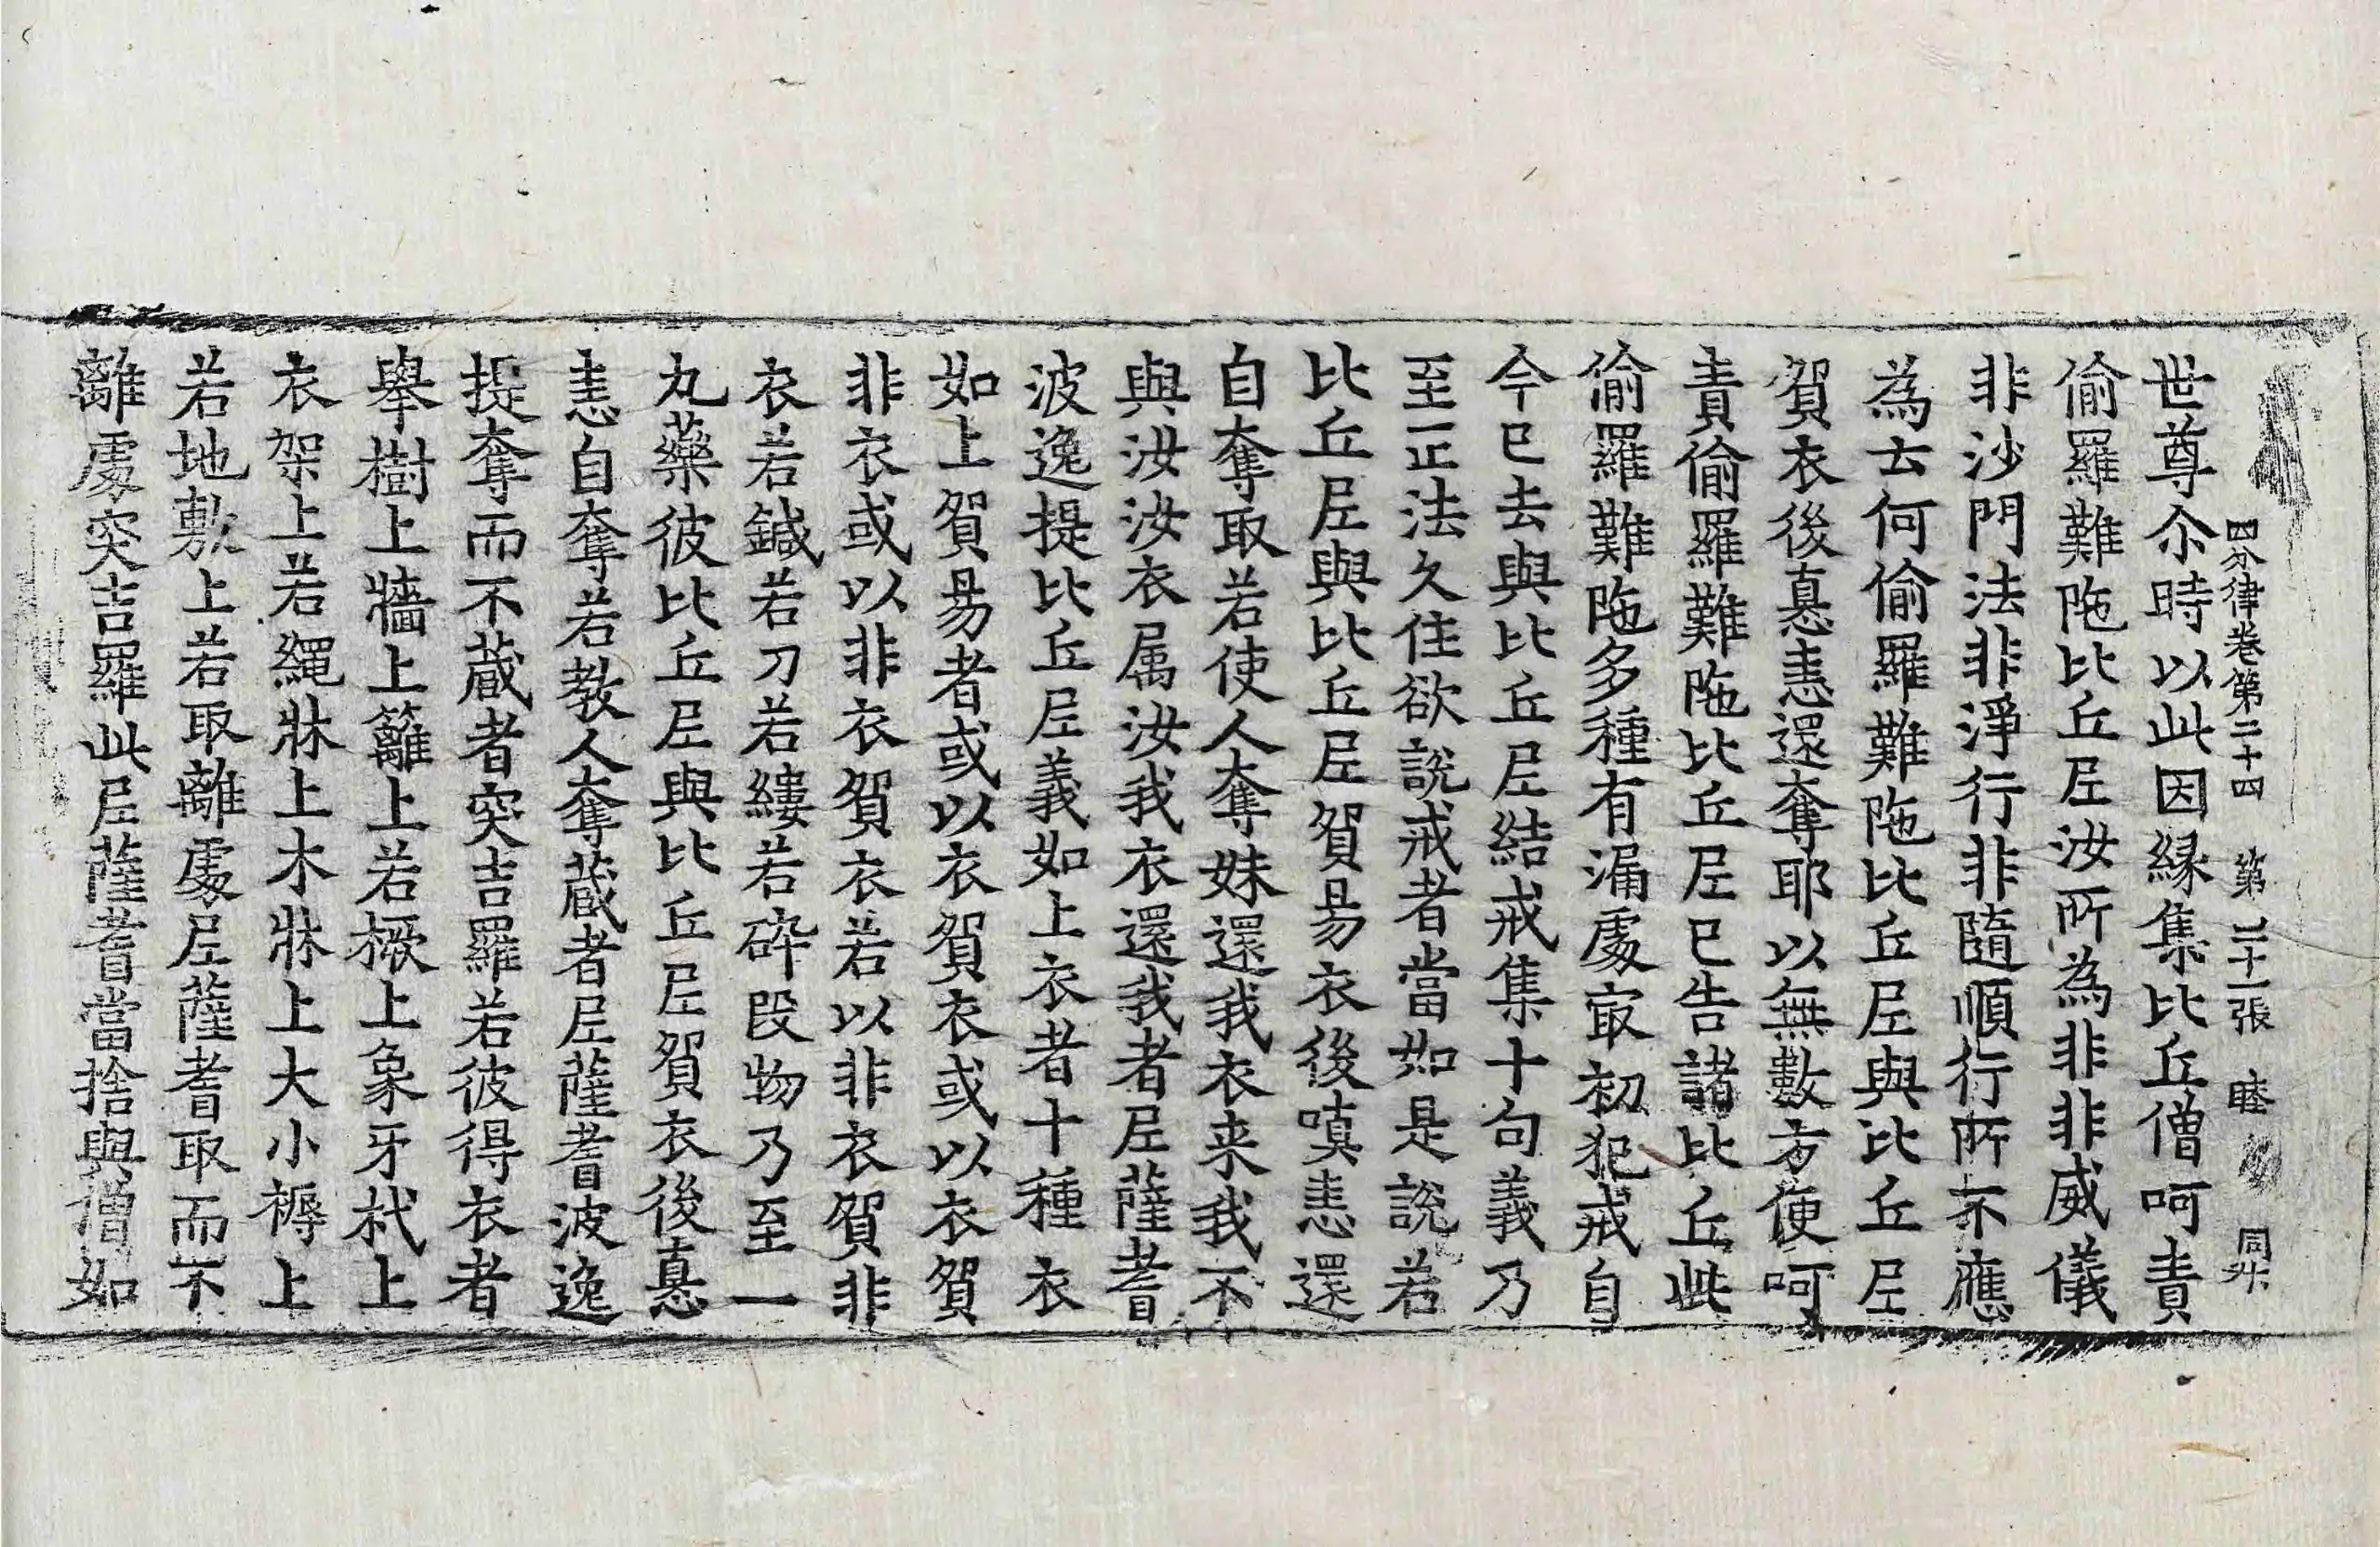 四分律卷第二十四　第二十一張　睦　同升
世尊尒時以此因緣集比丘僧呵責
偷羅難陁比丘尼汝所為非非威儀
非沙門法非淨行非隨順行所不應
為云何偷羅難陁比丘尼與比丘尼
貿衣後恚恚還奪耶以無數方便呵
責偷羅難陁比丘尼已告諸比丘此
偷羅難陁多種有漏處㝡初犯戒自
今已去與比丘尼結戒集十句義乃
至正法久住欲說戒者當如是說若
比丘尼與比丘尼貿易衣後嗔恚還
自奪取若使人奪妹還我衣来我不
與汝汝衣属汝我衣還我者尼薩耆
波逸提比丘尼義如上衣者十種衣
如上貿易者或以衣貿衣或以衣貿
非衣或以非衣貿衣若以非衣貿非
衣若鍼若刀若縷若碎段物乃至一
丸藥彼比丘尼與比丘尼貿衣後恚
恚自奪若教人奪蔵者尼薩耆波逸
提奪而不蔵者突吉羅若彼得衣者
舉樹上牆上籬上若橛上象牙杙上
衣架上若繩牀上木牀上大小褥上
若地敷上若取離處尼薩耆取而不
離處突吉羅此尼薩耆當捨與僧如